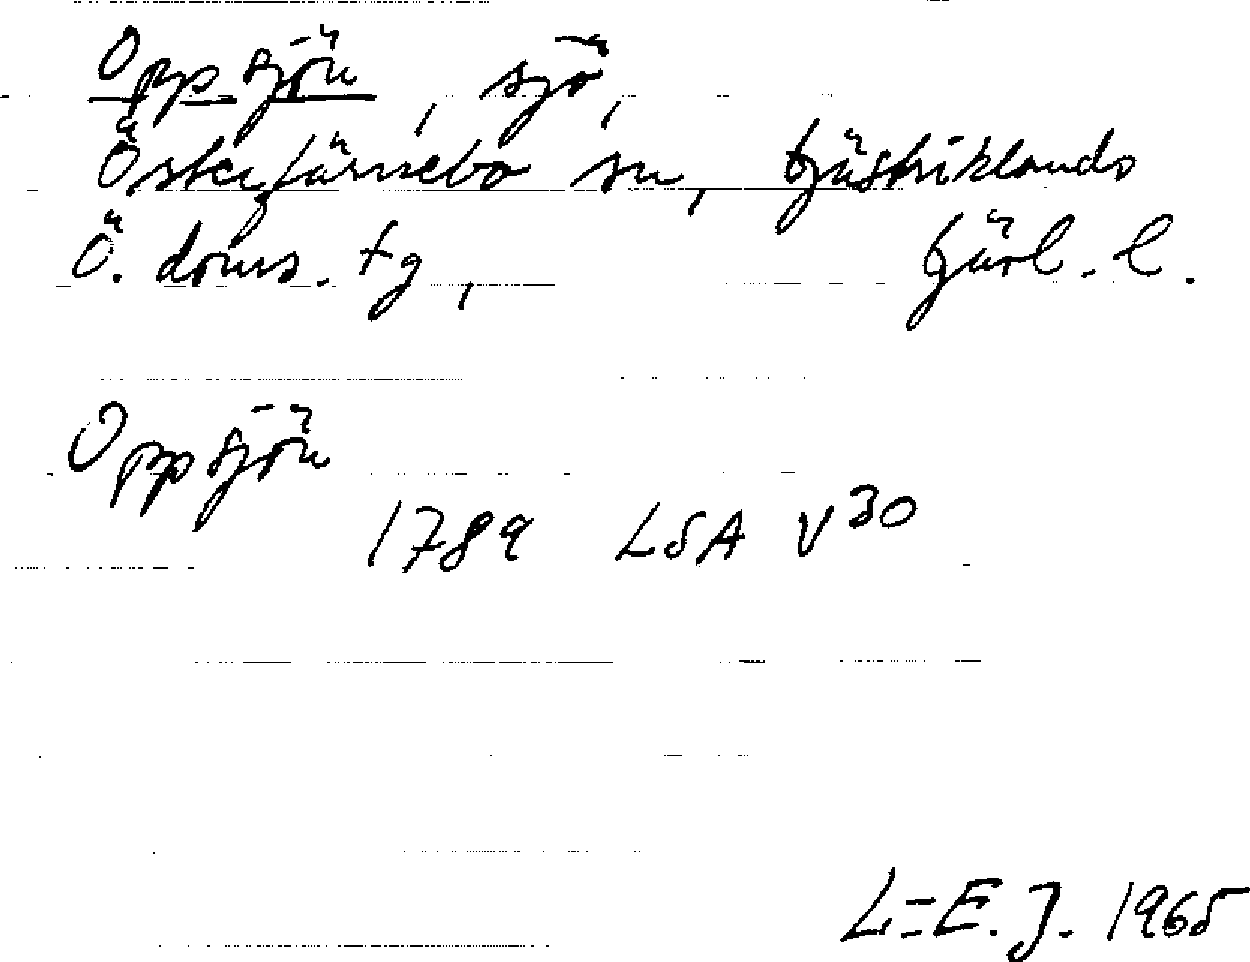 Oppsjön, sjö,
Österfärnebo sn, Gästriklands
Ö. doms. tg, Gävl. l.
Oppsjön
1789 LSA V30
L-E.J. 1965